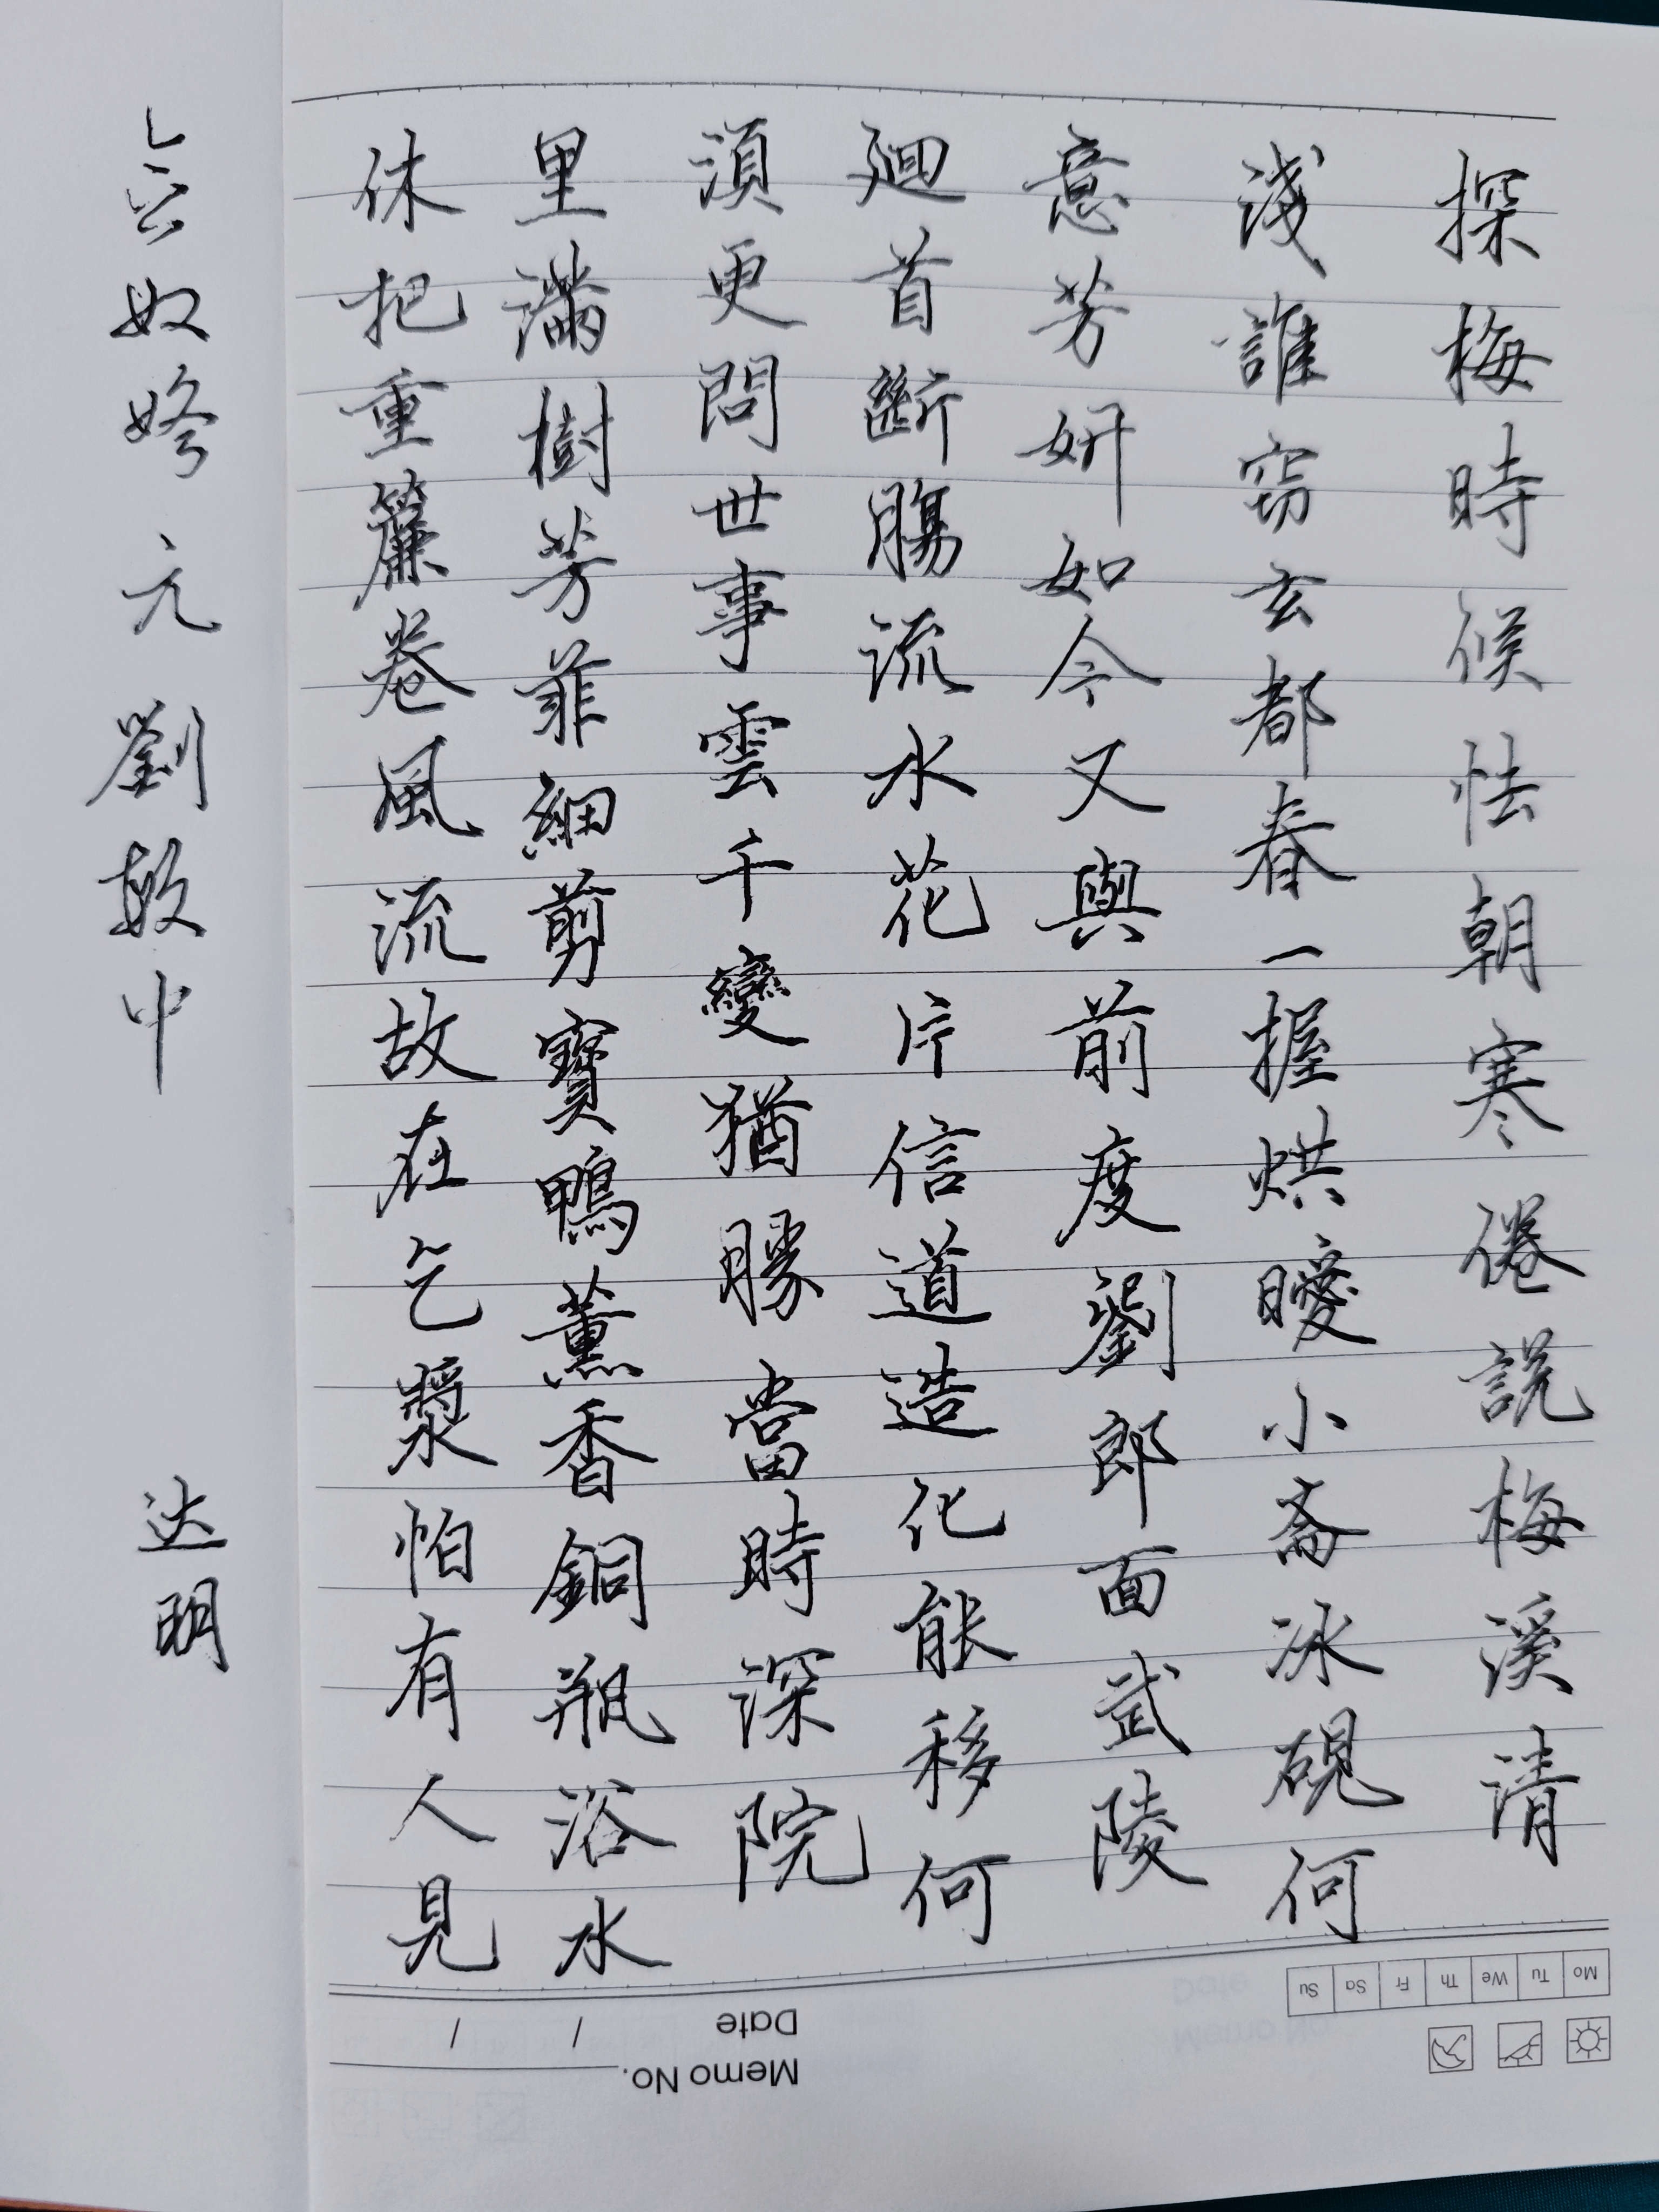 探梅時候怯朝寒倦説梅溪清
淺誰窃玄都春一握烘曖小斋冰硯何
意芳妍如今又與前度劉郎面武陵
廻首斷腸流水花片信道造化能移何
須更問世事雲千變猶勝當時深院
里滿樹芳菲細剪寶鴨薰香銅瓶浴水
休把重簾卷風流故在乞漿怕有人見
念奴娇 元 劉敏中 达明
Memo No.
Date / /
Mo Tu We Th Fr Sa Su